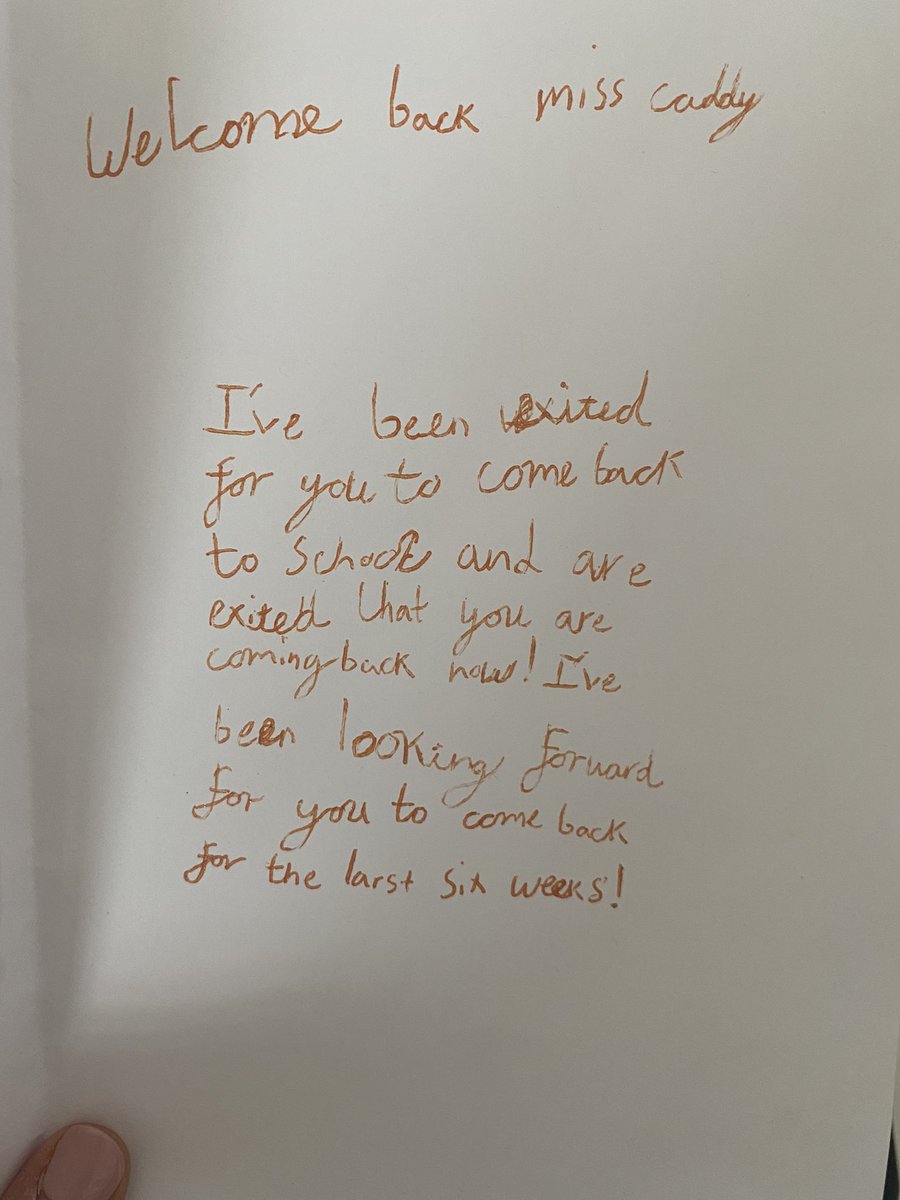 Welcome back miss caddy
I've been exited
for you to come back
to school and are
exited that you are
coming back now! I've
been looking forward
for you to come back
for the larst six weeks!